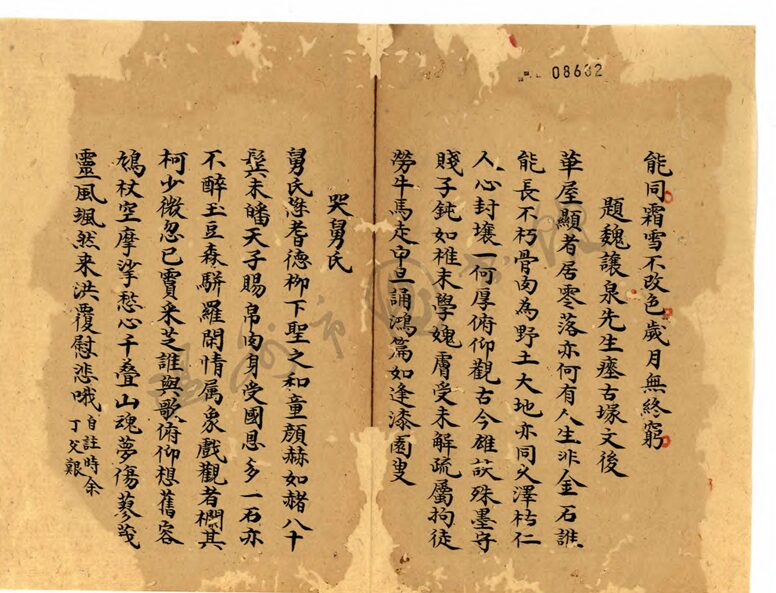 08632
能同霜雪不改色歲月無終窮
題魏讓泉先生瘞古塚文後
華屋顯者居零落亦何有人生非金石誰
能長不朽骨肉為野土大地亦同久澤枯仁
人心封壤一何厚俯仰觀古今雄談殊墨守
賤子鈍如椎末學媿膚受未解疏屬拘徒
勞牛馬走帀旦誦鴻篇如逢漆園叟
哭舅氏
舅氏懋耆德柳下聖之和童顏赫如赭八十
鬂未皤天子賜帛肉身受國恩多一石亦
不醉玉豆森駢羅閒情属象戲觀者櫩其
柯少微忽已霣采芝誰與歌俯仰想舊容
鳩杖空摩挲愁心千叠山魂夢傷蓼莪
靈風颯然来洪覆慰悲哦自註時余
丁父艱
温州市圖